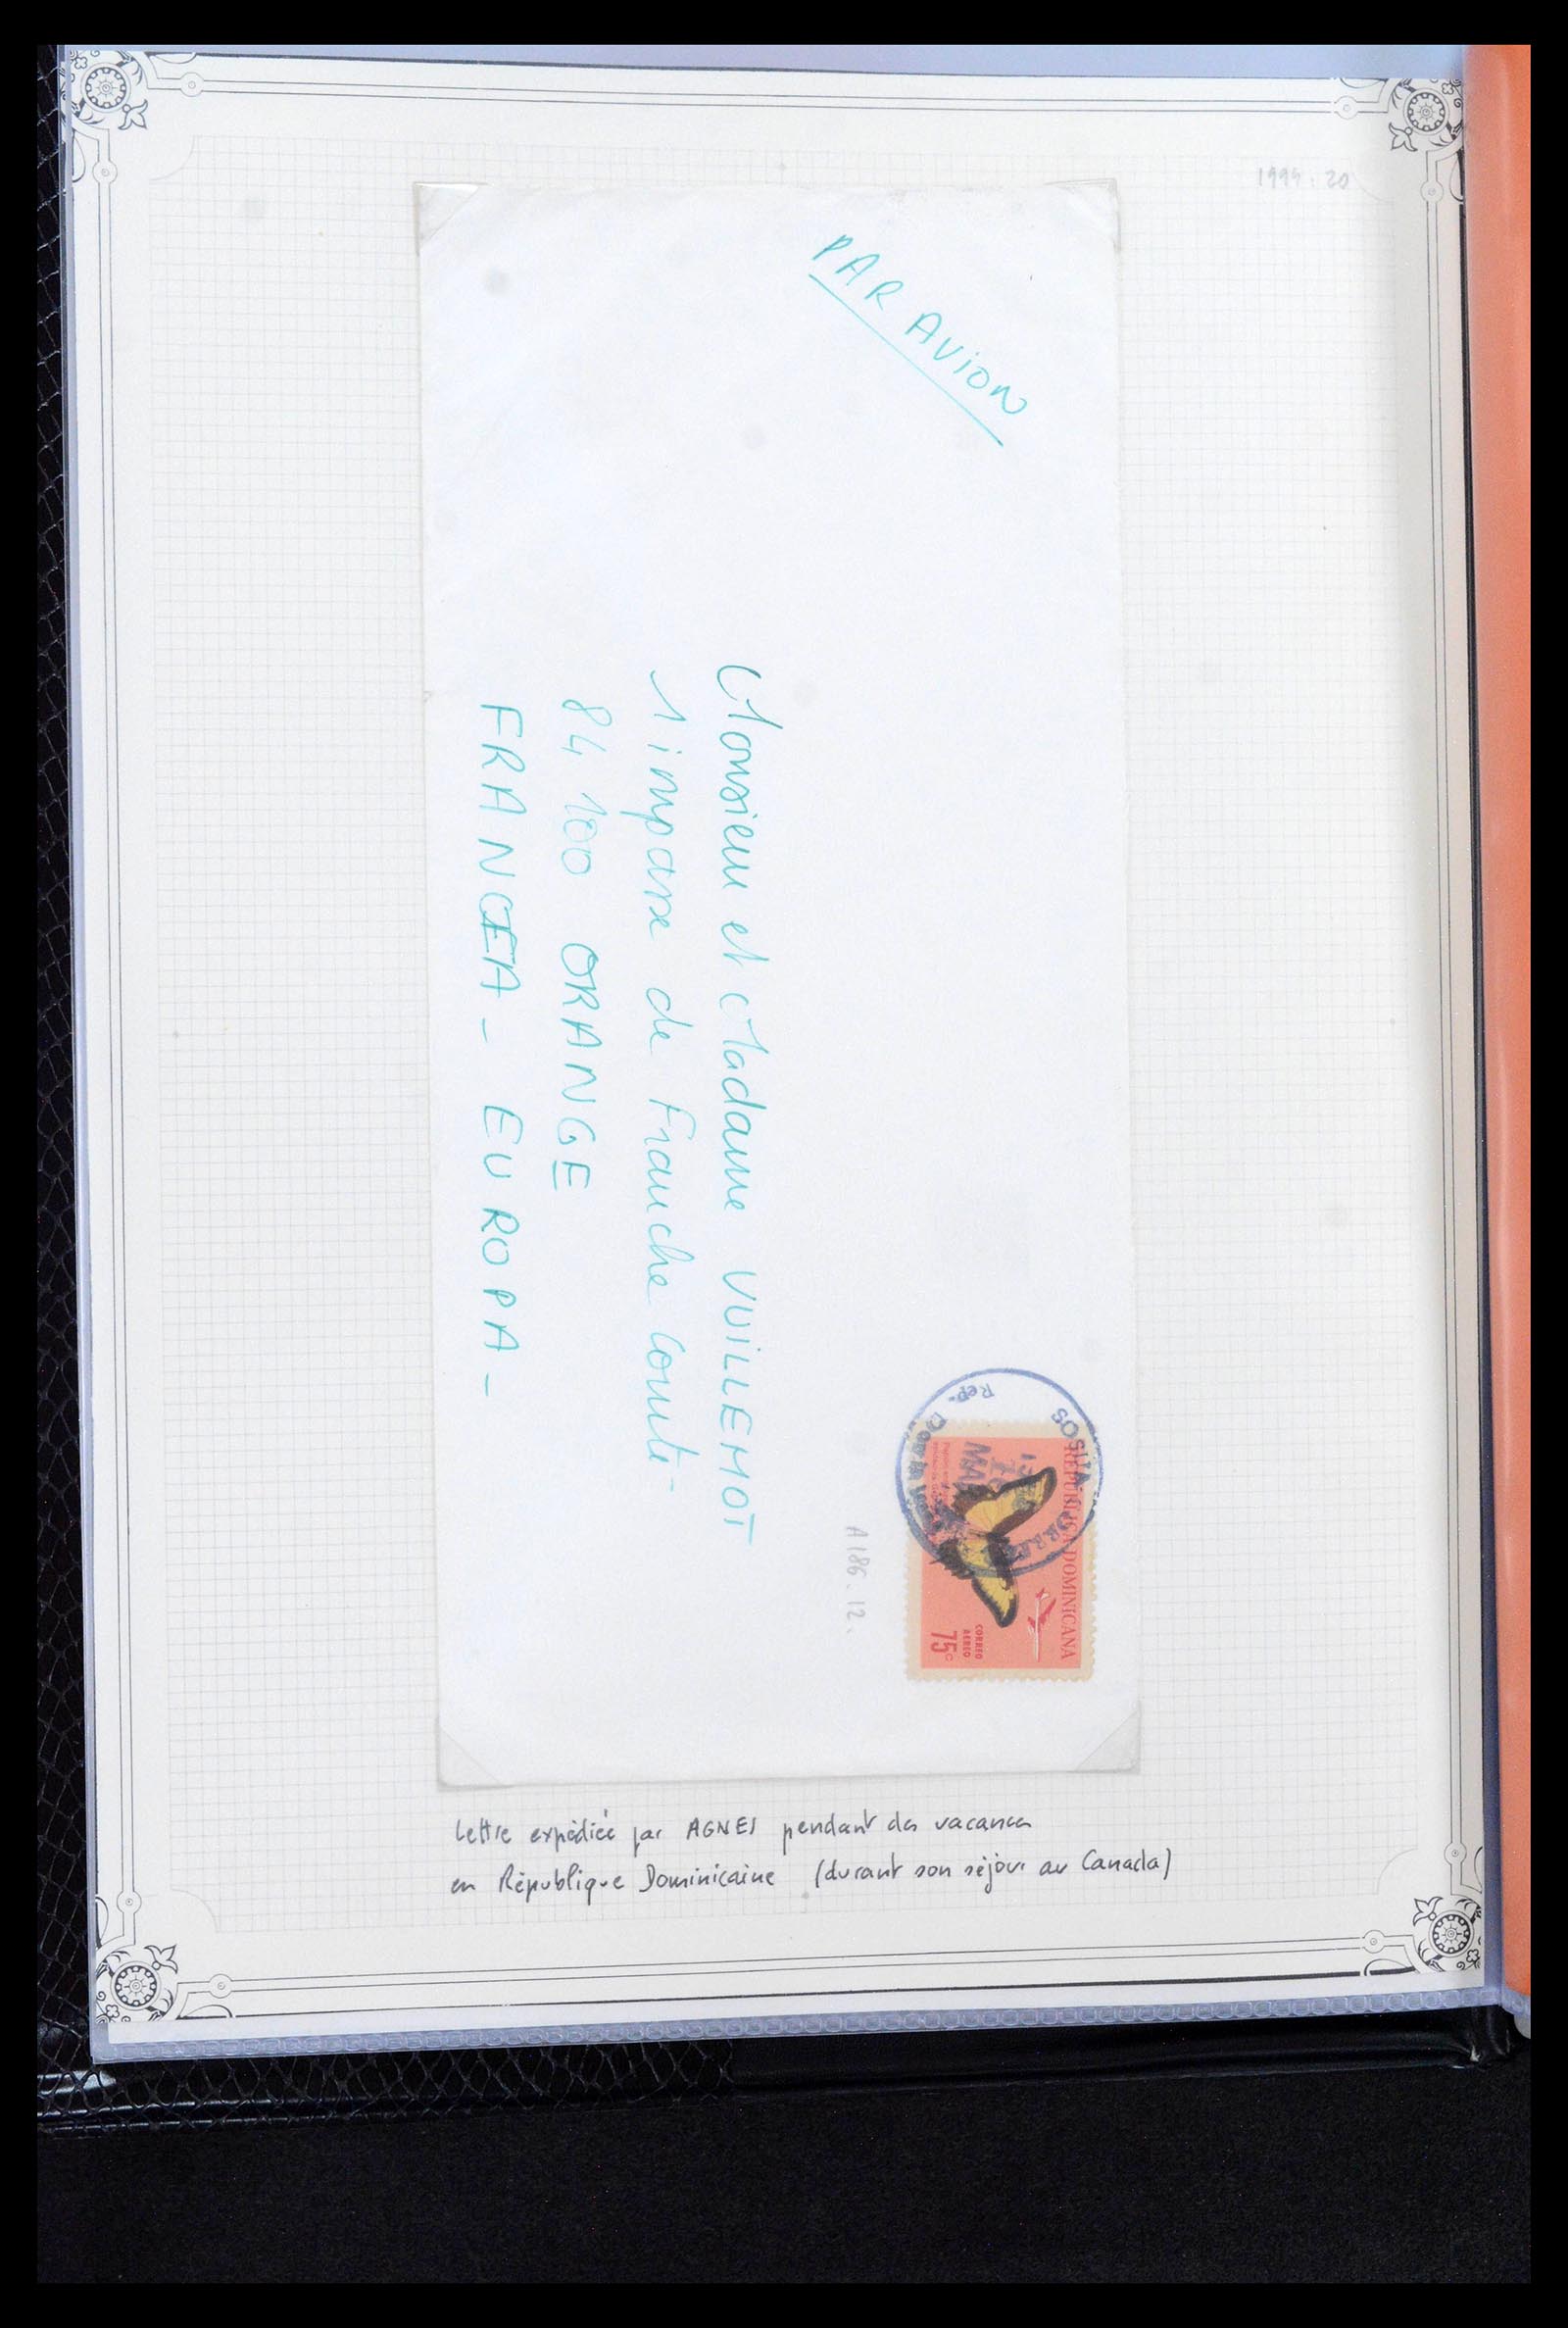 1994.20
PAR AVION
Monsieur et Madame VUILLEMOT
1 impasse de Franche Comté
84 100 ORANGE
FRANCEA - EUROPA -
REPUBLICA DOMINICANA
CORREO
AEREO
75c
SOSUA
Rep.
MAR
A186.12.
Lettre expédiée par AGNES pendant des vacances
en République Dominicaine (durant son séjour au Canada)